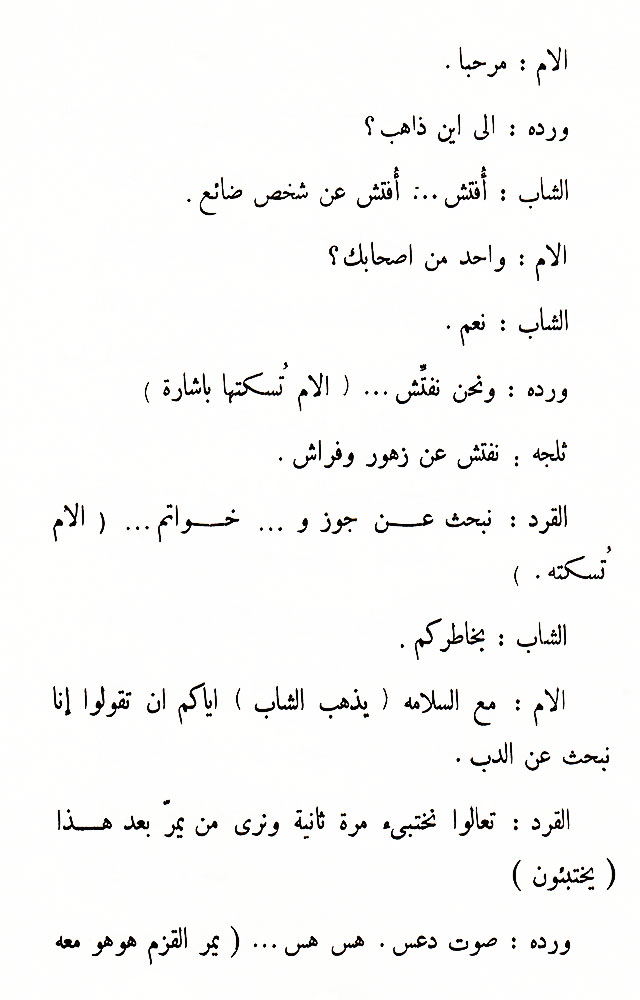 الام : مرحبا .
ورده : الى اين ذاهب ؟
الشاب : أُفتش ... أُفتش عن شخص ضائع .
الام : واحد من اصحابك ؟
الشاب : نعم .
ورده : ونحن نفتّش ... ( الام تُسكتها باشارة )
ثلجه : نفتش عن زهور وفراش .
القرد : نبحث عـــن جوز و ... خـــواتم ... ( الام
تُسكته . )
الشاب : بخاطركم .
الام : مع السلامه ( يذهب الشاب ) اياكم ان تقولوا إنا
نبحث عن الدب .
القرد : تعالوا نختبىء مرة ثانية ونرى من يمرّ بعد هـــذا
( يختبئون )
ورده : صوت دعس . هس هس ... ( يمر القزم هوهو معه